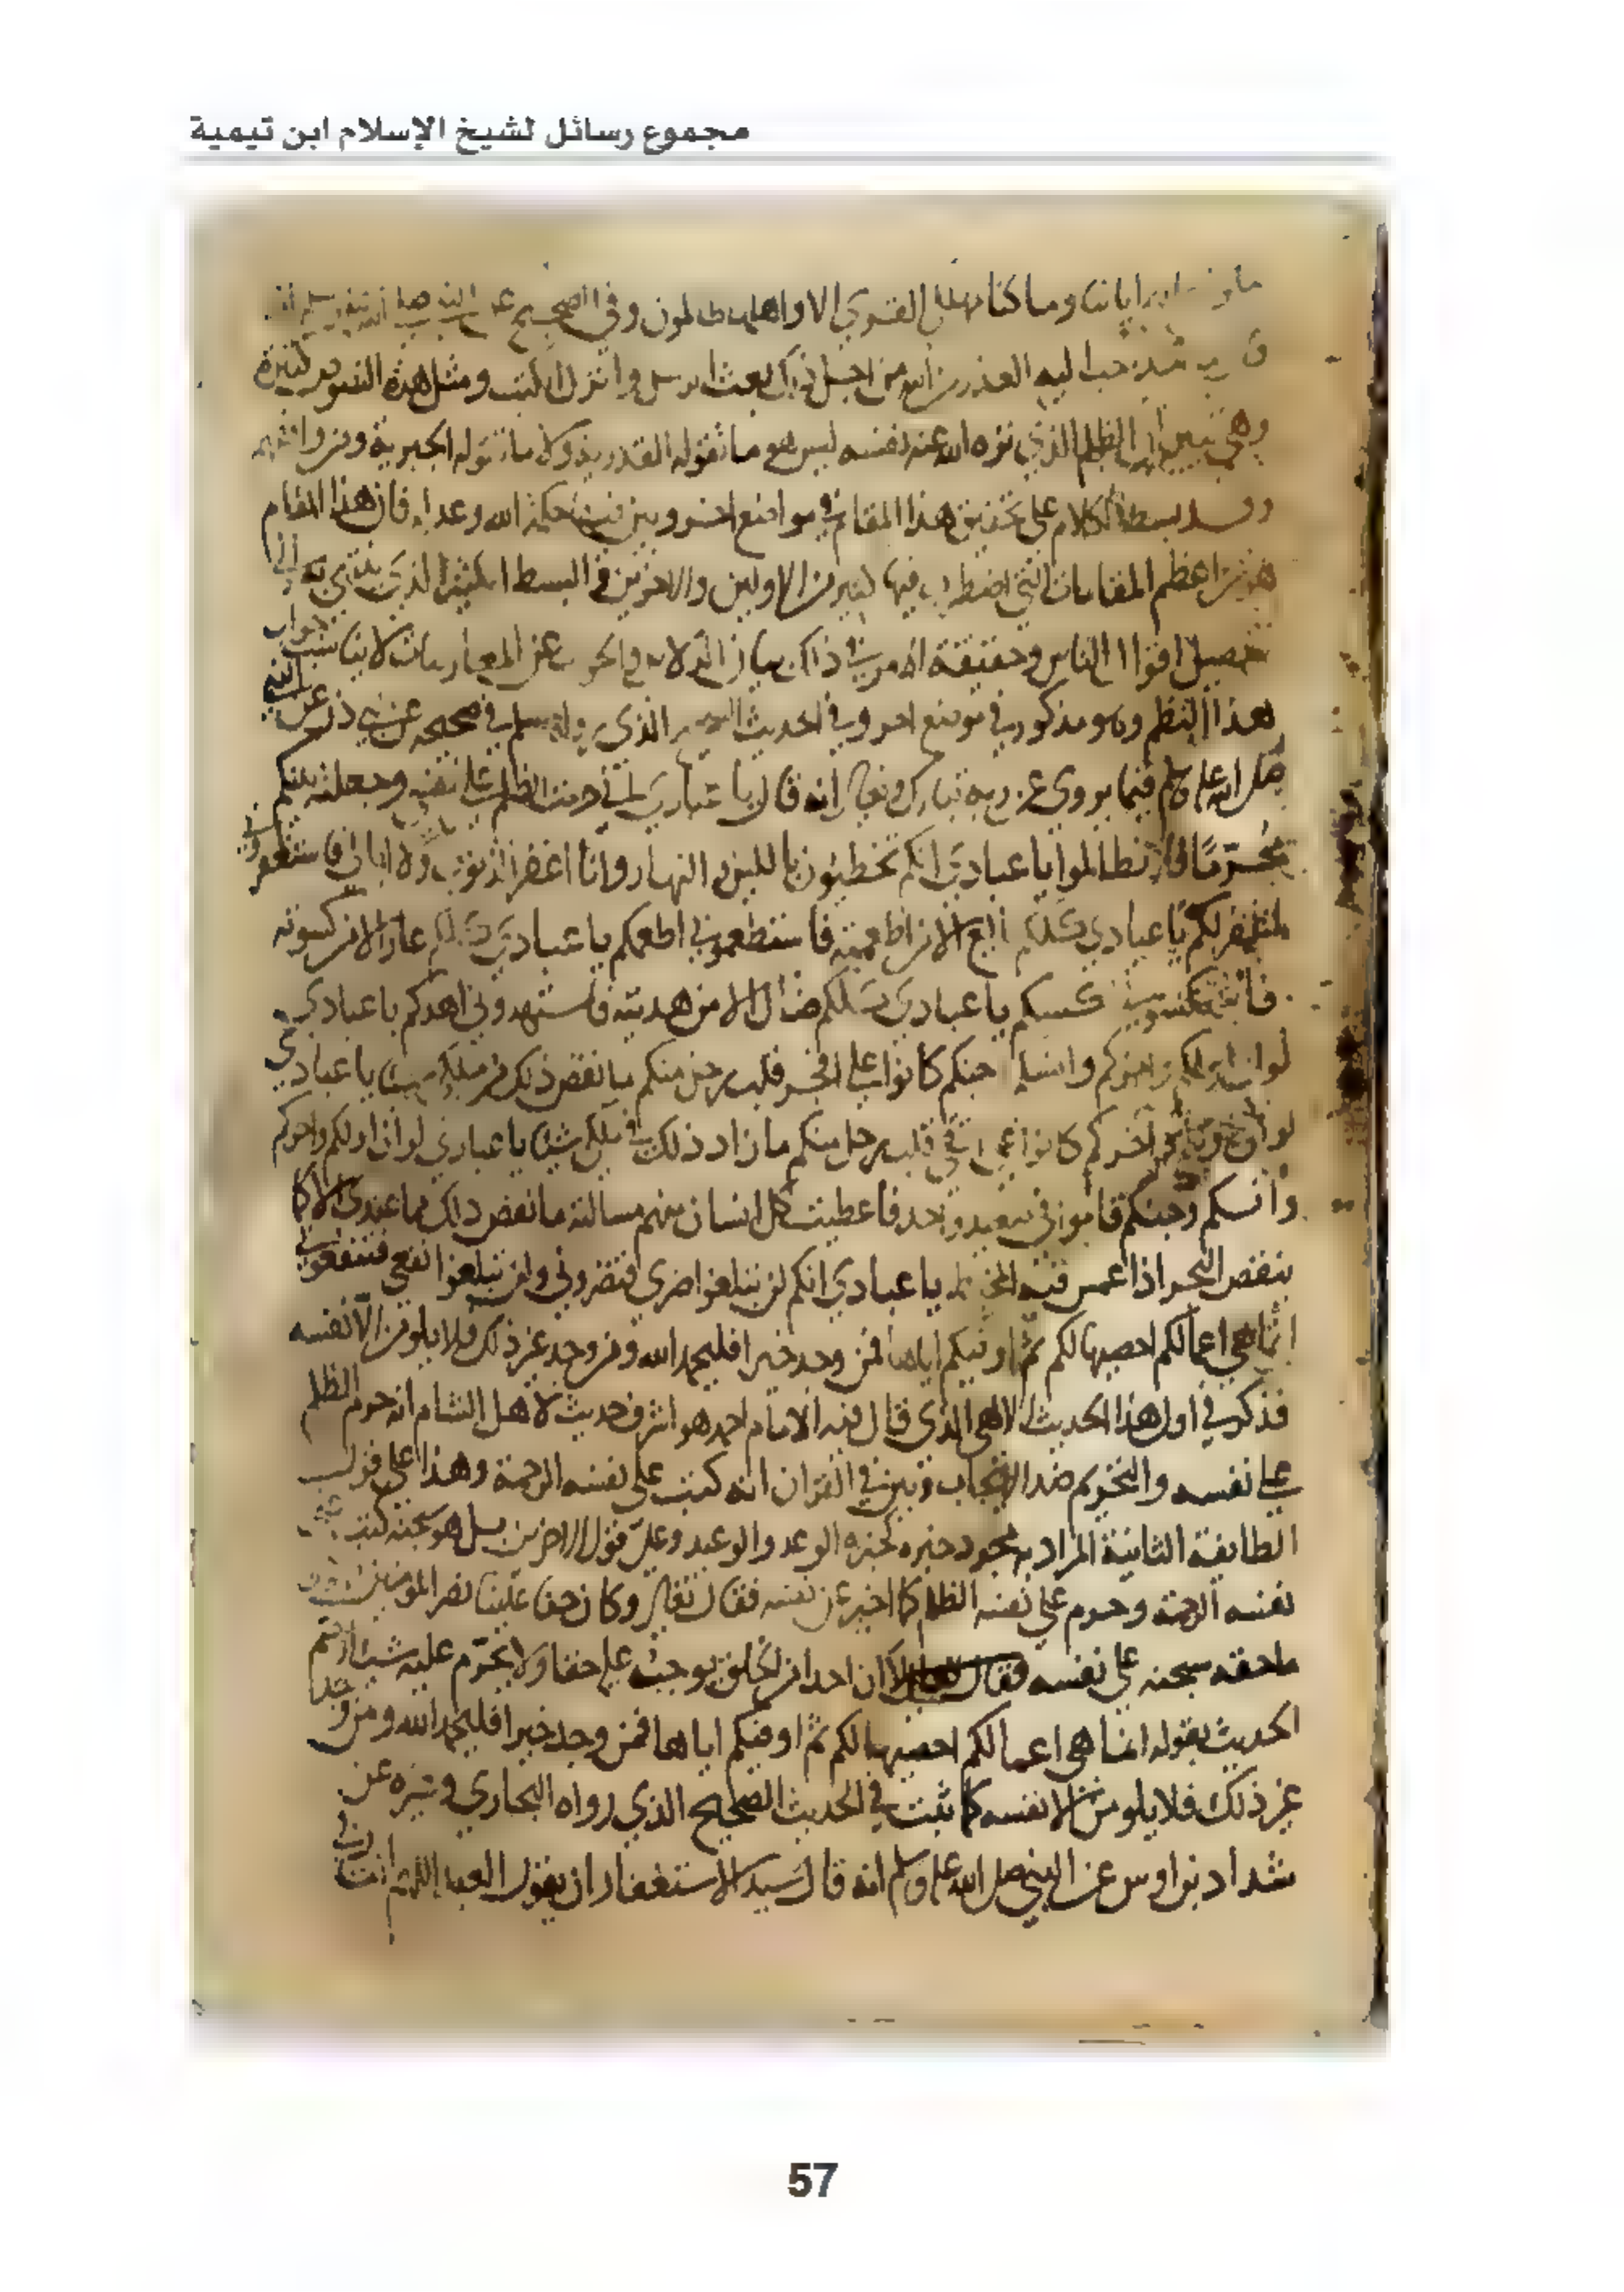 مجموع رسائل لشيخ الإسلام ابن تيمية
اياتنا وما كنا مهلكي القرى الا واهلها ظالمون وفي الصحيح عن النبي صلى الله
احب اليه العذر من الله من اجل ذلك بعث الرسل وانزل الكتب ومثل هذه النصوص كثيرة
وهي تبين ان الظلم الذي نزه الله عنه نفسه ليس هو ما تقوله القدرية ولا ما تقوله الجبرية ومن وافقهم
وقد بسط الكلام على تحقيق هذا المقام في مواضع اخر وبين فيه حكمة الله وعدله فان هذا المقام
هو من اعظم المقامات التي اضطرب فيها كثير من الاولين والاخرين في البسط الكثير الذي ينتهي به الى
تفصيل اقوال الناس وحقيقة الامر في ذلك بيان الدلالة والجواب عن المعارضات لا يناسب جواب
هذا النظم وهو مذكور في موضع اخر وفي الحديث الذي رواه مسلم في صحيحه عن ابي ذر عن النبي
صلى الله عليه وسلم فيما يروي عن ربه تبارك وتعالى انه قال يا عبادي اني حرمت الظلم على نفسي وجعلته بينكم
محرمًا فلا تظالموا يا عبادي انكم تخطئون بالليل والنهار وانا اغفر الذنوب ولا ابالي فاستغفروني
اغفر لكم يا عبادي كلكم جايع الا من اطعمته فاستطعموني اطعمكم يا عبادي كلكم عار الا من كسوته
فاستكسوني اكسكم يا عبادي كلكم ضال الا من هديته فاستهدوني اهدكم يا عبادي
لو ان اولكم واخركم وانسكم وجنكم كانوا على افجر قلب رجل منكم ما نقص ذلك من ملكي شيئا يا عبادي
لو ان اولكم واخركم كانوا على اتقى قلب رجل منكم ما زاد ذلك في ملكي شيئا يا عبادي لو ان اولكم واخركم
وانسكم وجنكم قاموا في صعيد واحد فاعطيت كل انسان منهم مسالته ما نقص ذلك مما عندي الا كما
ينقص البحر اذا غمس فيه المخيط يا عبادي انكم لن تبلغوا ضري فتضروني ولن تبلغوا نفعي فتنفعوني
انما هي اعمالكم احصيها لكم ثم اوفيكم اياها فمن وجد خيرا فليحمد الله ومن وجد غير ذلك فلا يلومن الا نفسه
فذكر في اول هذا الحديث الالهي الذي قال فيه الامام احمد هو اشرف حديث لاهل الشام انه حرم الظلم
على نفسه والتحريم ضد الايجاب وبين في القران انه كتب على نفسه الرحمة وهذا على قول
الطايفة الثانية المراد به مجرد خبره كخبره الوعد والوعيد وعلى قول الاخرين بل هو سبحنه كتب على
نفسه الرحمة وحرم على نفسه الظلم كما اخبر عن نفسه فقال تعالى وكان حقا علينا نصر المومنين
ما حقه سبحنه على نفسه لا ان احدا من الخلق يوجب عليه حقا ولا يحرم عليه شيئا وختم
الحديث بقوله انما هي اعمالكم احصيها لكم ثم اوفيكم اياها فمن وجد خيرا فليحمد الله ومن وجد
غير ذلك فلا يلومن الا نفسه كما ثبت في الحديث الصحيح الذي رواه البخاري وغيره عن
شداد بن اوس عن النبي صلى الله عليه وسلم انه قال سيد الاستغفار ان يقول العبد اللهم انت ربي
57